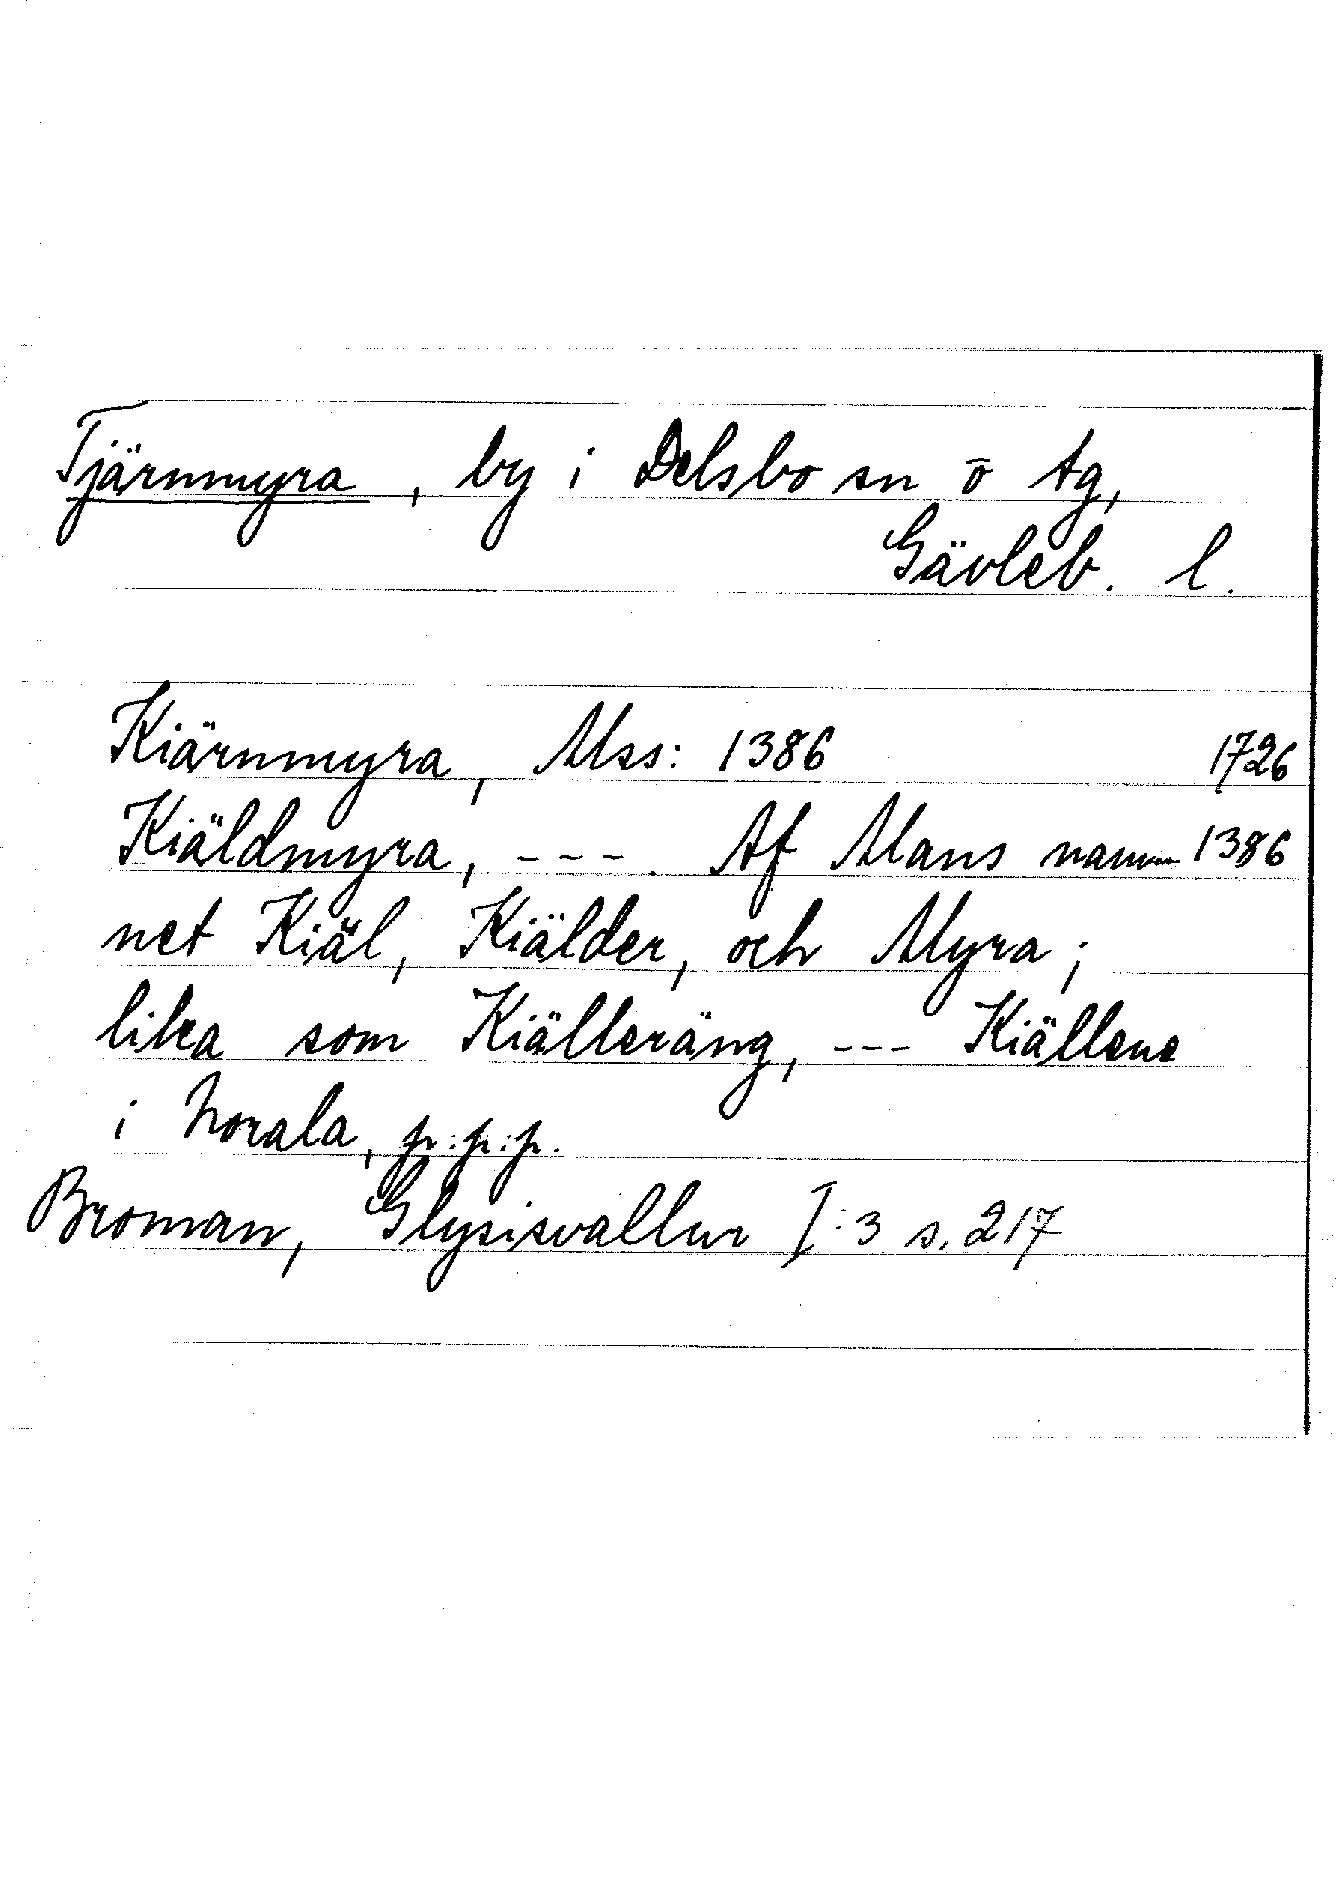 Tjärnmyra, by i Delsbo sn ö tg,
Gävleb. l.
Kiärnmyra, Mss: 1386 1726
Kiäldmyra, - - - . Af Mans namn- 1386
net Kiäl, Kiälder, och Myra;
lika som Kiälleräng, - - - Kiällene
i Norala, p:p:p.
Broman, Glysisvallur I:3 s. 217